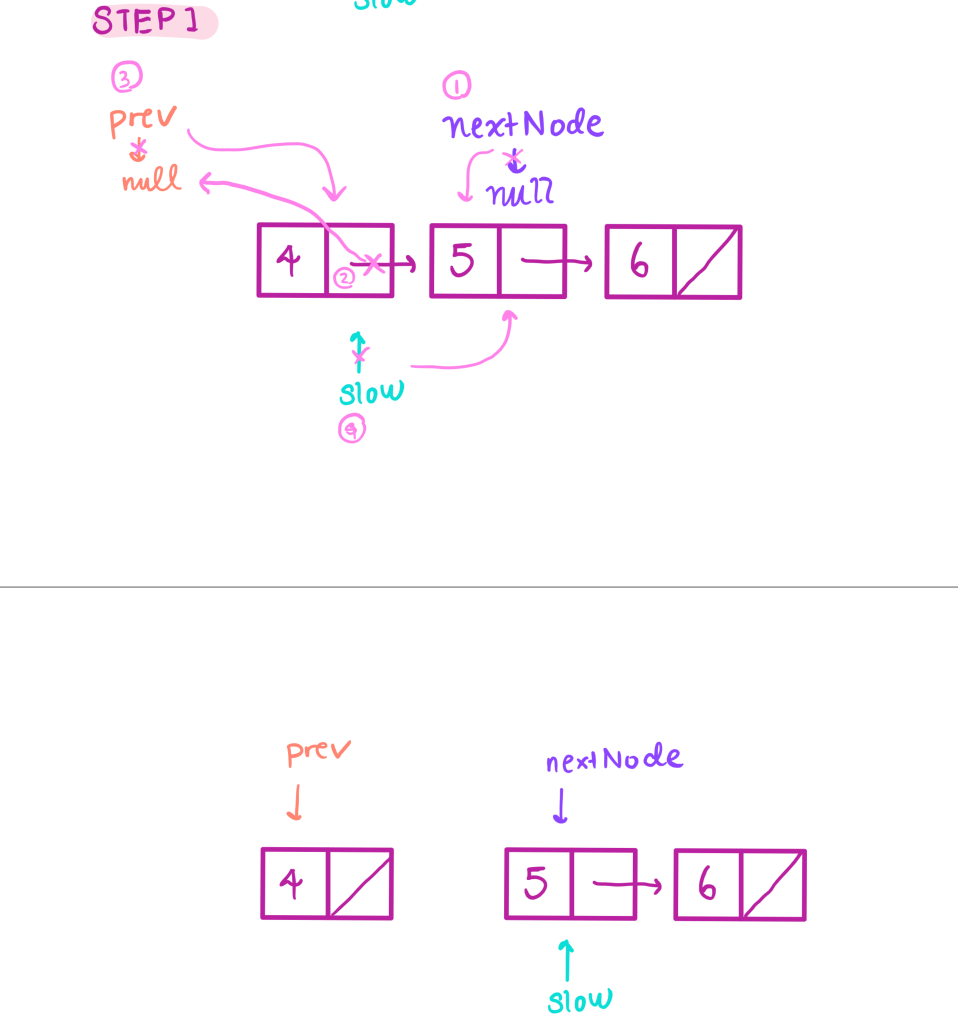 slow
STEP 1
③ ①
prev nextNode
null null
4 ② 5 6
slow
④
prev nextNode
4 5 6
slow